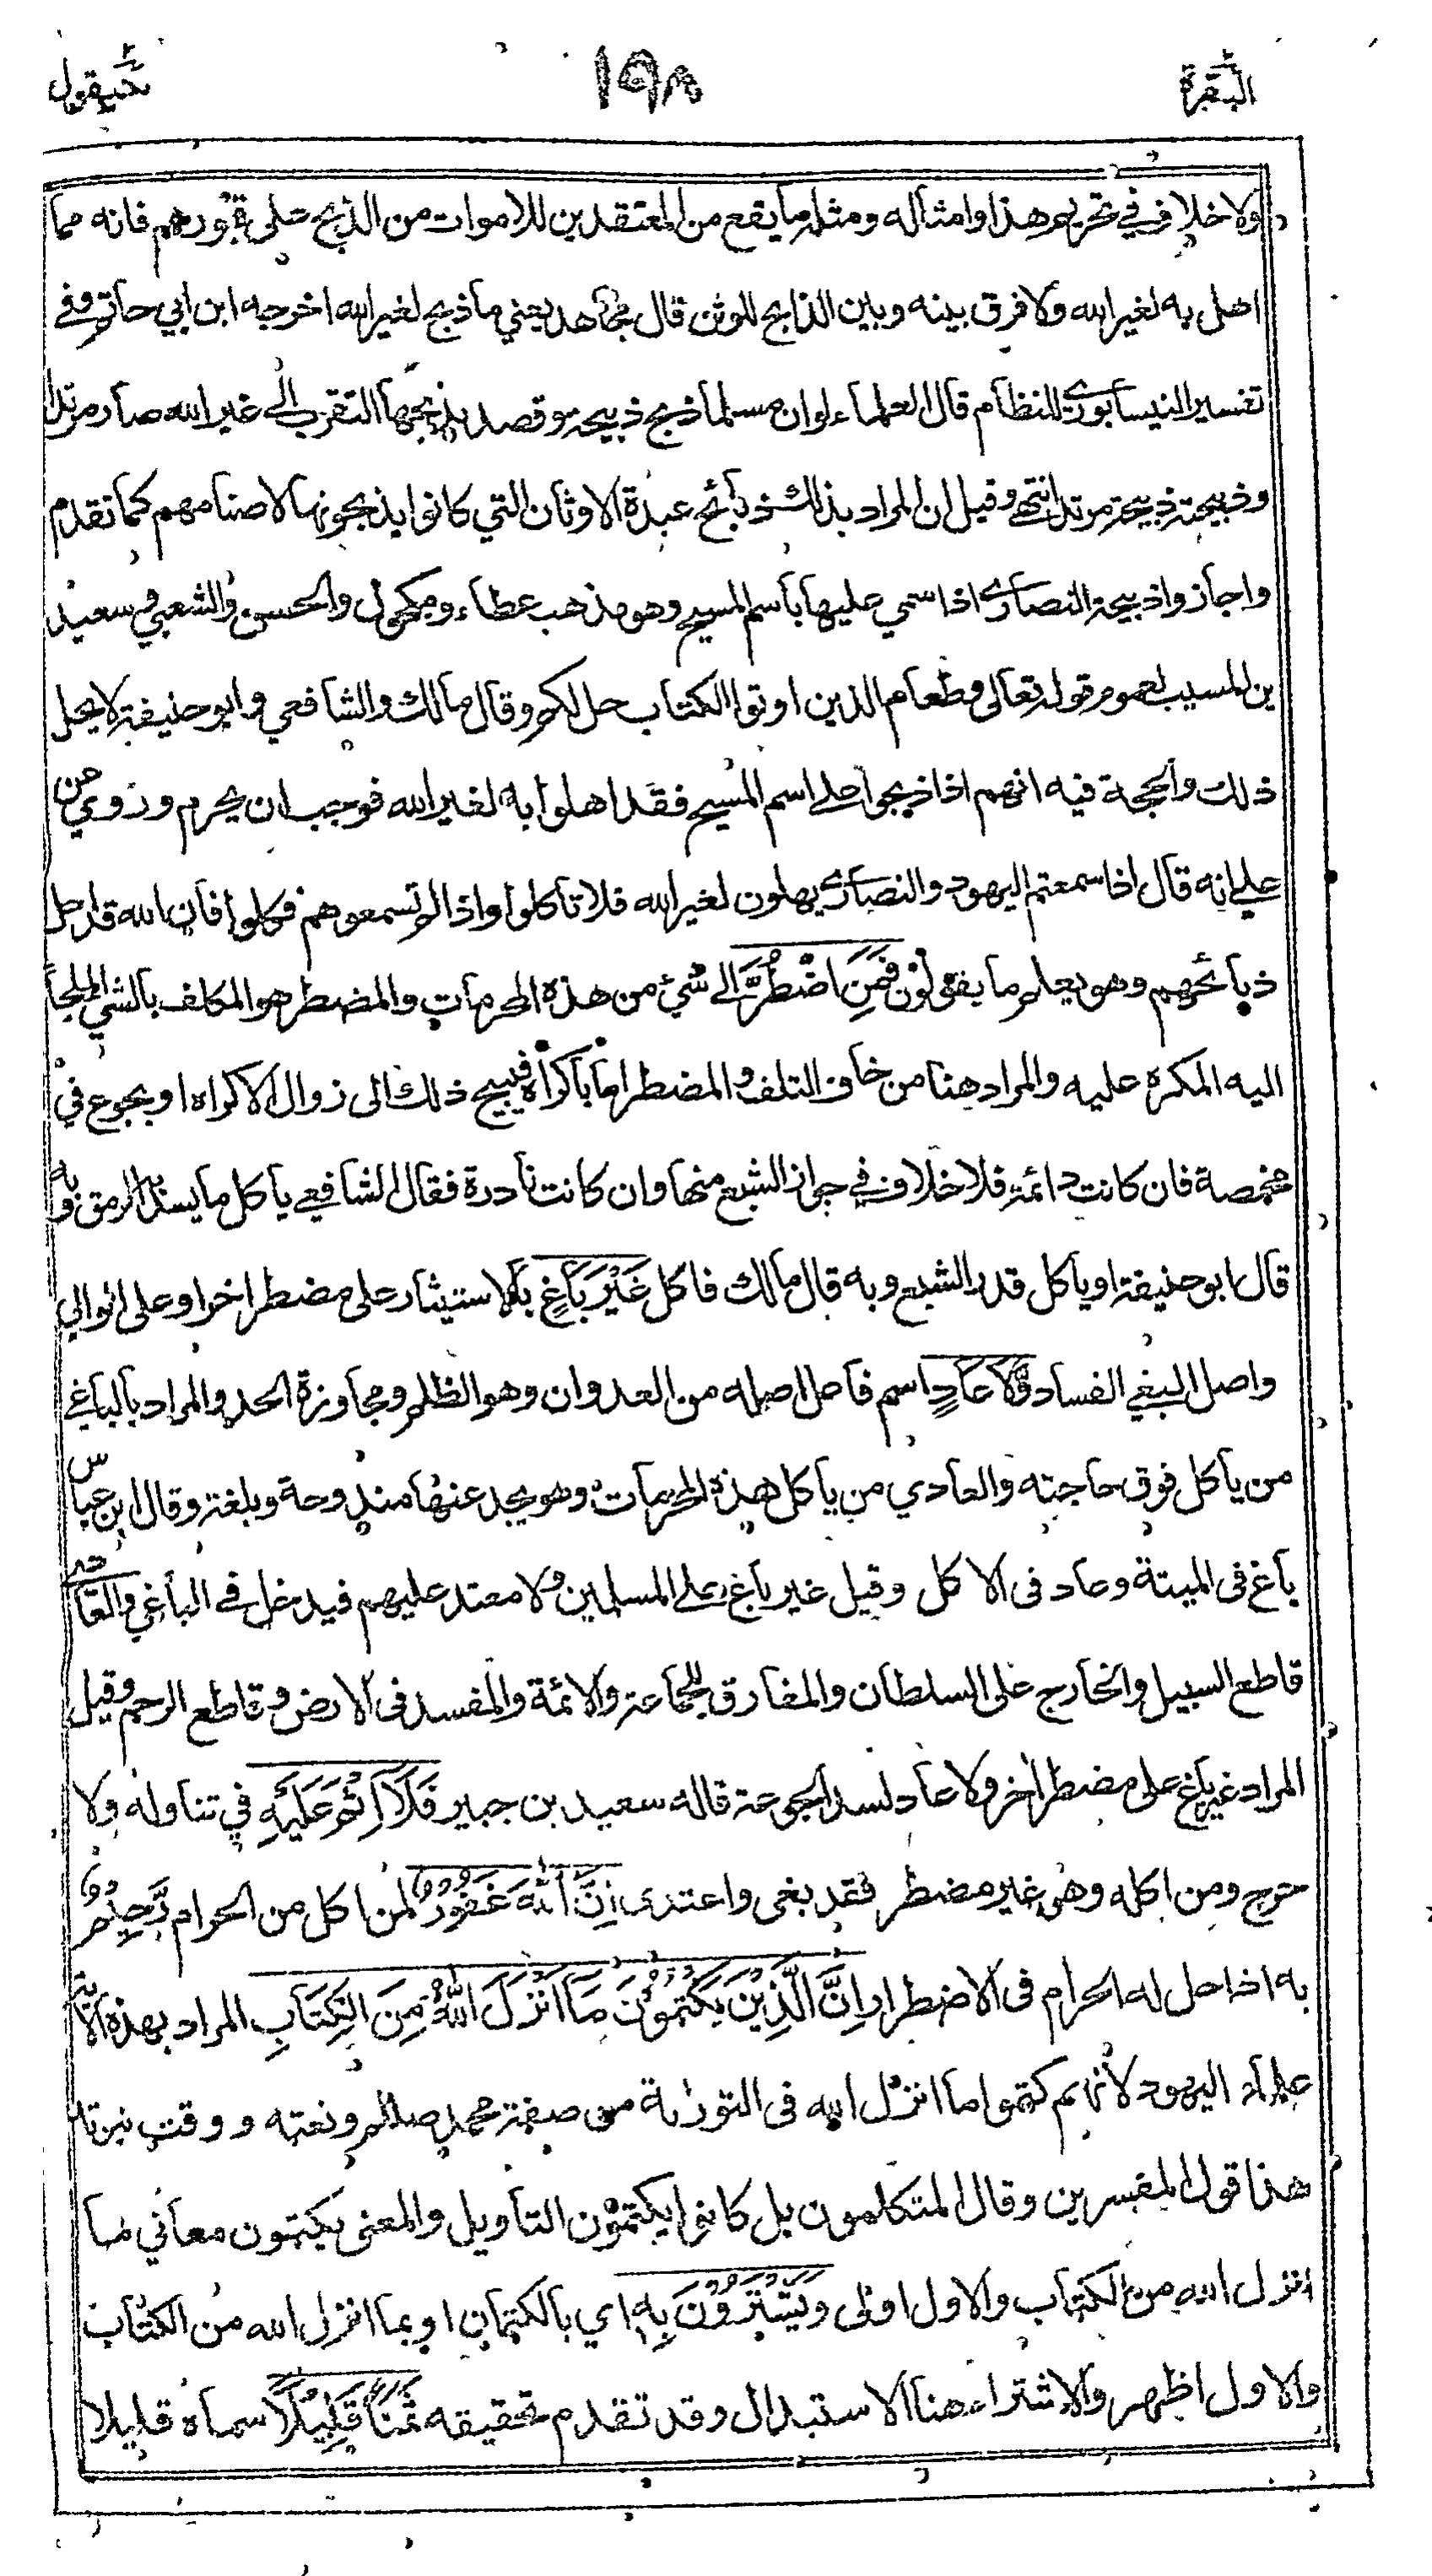 البقرة ١٩٨ سيقول
ولا خلاف في تحريم هذا وامثاله ومثله ما يقع من المعتقدين للاموات من الذبح على قبورهم فانه مما
اهل به لغير الله ولا فرق بينه وبين الذابح للوثن قال مجاهد يعني ما ذبح لغير الله اخرجه ابن ابي حاتم وفي
تفسير النيسابوري للنظام قال العلماء لو ان مسلما ذبح ذبيحة وقصد بذبحها التقرب الى غير الله صار مرتدا
وذبيحته ذبيحة مرتد انتهى وقيل ان المراد بذلك ذبائح عبدة الاوثان التي كانوا يذبحونها لاصنامهم كما تقدم
واجازوا ذبيحة النصارى اذا سمي عليها باسم المسيح وهو مذهب عطاء ومكحول والحسن والشعبي وسعيد
بن المسيب لعموم قوله تعالى وطعام الذين اوتوا الكتاب حل لكم وقال مالك والشافعي وابو حنيفة لا يحل
ذلك والحجة فيه انهم اذا ذبحوا على اسم المسيح فقد اهلوا به لغير الله فوجب ان يحرم وروي عن
علي انه قال اذا سمعتم اليهود والنصارى يهلون لغير الله فلا تاكلوا واذا لم تسمعوهم فكلوا فان الله قد احل
ذبائحهم وهو يعلم ما يقولون فَمَنِ اضْطُرَّ الى شيء من هذه المحرمات والمضطر هو المكلف بالشي الملجأ
اليه المكره عليه والمراد هنا من خاف التلف والمضطر اما باكراه فيبيح ذلك الى زوال الاكراه او بجوع في
مخمصة فان كانت دائمة فلا خلاف في جواز الشبع منها وان كانت نادرة فقال الشافعي ياكل ما يسد الرمق وبه
قال ابو حنيفة او ياكل قدر الشبع وبه قال مالك فاكل غَيْرَ بَاغٍ بالاستيثار على مضطر اخر او على الوالي
واصل البغي الفساد وَّلَا عَادٍ اسم فاعل اصله من العدوان وهو الظلم ومجاوزة الحد والمراد بالباغي
من ياكل فوق حاجته والعادي من ياكل هذه المحرمات وهو يجد عنها مندوحة وبلغة وقال ابن عباس
باغ في الميتة وعاد في الاكل وقيل غير باغ على المسلمين ولا معتد عليهم فيدخل في الباغي والعادي
قاطع السبيل والخارج على السلطان والمفارق للجماعة والائمة والمفسد في الارض وقاطع الرحم وقيل
المراد غير باغ على مضطر اخر ولا عاد لسد الجوعة قاله سعيد بن جبير فَلَآ اِثْمَ عَلَيْهِ في تناوله ولا
حرج ومن اكله وهو غير مضطر فقد بغى واعتدى اِنَّ اللّٰهَ غَفُوْرٌ لمن اكل من الحرام رَّحِيْمٌ
به اذا حل له الحرام في الاضطرار اِنَّ الَّذِيْنَ يَكْتُمُوْنَ مَآ اَنْزَلَ اللّٰهُ مِنَ الْكِتَابِ المراد بهذه الاية
علماء اليهود لانهم كتموا ما انزل الله في التوراة من صفة محمد صللم ونعته ووقت نبوته
هذا قول المفسرين وقال المتكلمون بل كانوا يكتمون التاويل والمعنى يكتمون معاني ما
انزل الله من الكتاب والاول اولى وَيَشْتَرُوْنَ بِهٖ اي بالكتمان او بما انزل الله من الكتاب
والاول اظهر والاشتراء هنا الاستبدال وقد تقدم تحقيقه ثَمَنًا قَلِيْلًا سماه قليلا